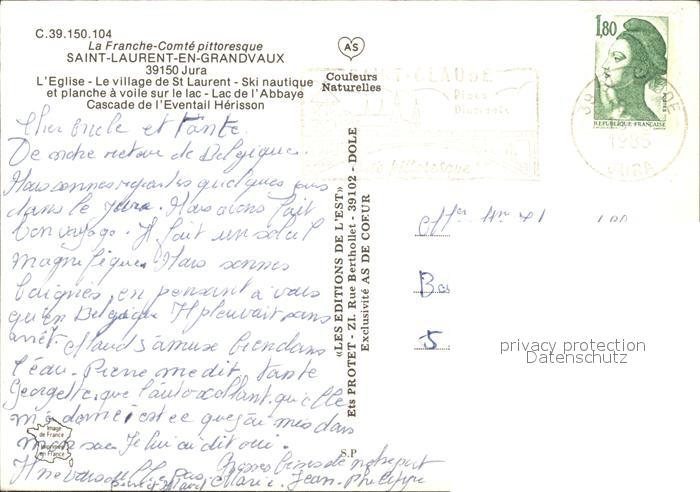 C.39.150.104
La Franche-Comté pittoresque
SAINT-LAURENT-EN-GRANDVAUX
39150 Jura
L'Eglise - Le village de St Laurent - Ski nautique
et planche à voile sur le lac - Lac de l'Abbaye
Cascade de l'Eventail Hérisson
AS
Couleurs
Naturelles
SAINT-CLAUDE
Pipes
Diamants
pittoresque
1,80
REPUBLIQUE FRANÇAISE
1985
JURA
Cher oncle et Tante.
De notre retour de Belgique.
Nous sommes quelques jours
dans le Jura. Nous avons fait
bon voyage. Il fait un soleil
magnifique. Nous sommes
baignés, en pensant à vous
qu'en Belgique Il pleuvait sans
arrêt. Maud s'amuse bien dans
l'eau. Pierre me dit, Tante
Georgette, que l'autocollant, qu'elle
m'a donné est ce que j'ai mis dans
mon sac. Je lui ai dit oui.
Grosses bises de notre part
Marie. Jean-Philippe
«LES EDITIONS DE L'EST»
Ets PROTET - Z.I. Rue Berthollet - 39102 - DOLE
Exclusivité AS DE COEUR
S.P
Image
de France
Imprimé
en France
5
privacy protection
Datenschutz